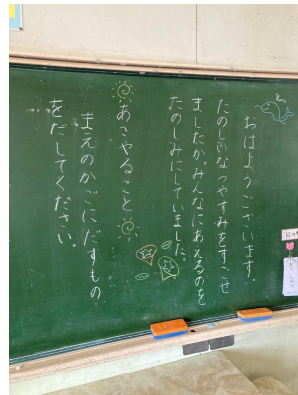 おはようございます
たのしいなつやすみをすごせ
ましたか。みんなにあえるのを
たのしみにしていました。
あさやること
まえのかごにだすもの
をだしてください。
にっち